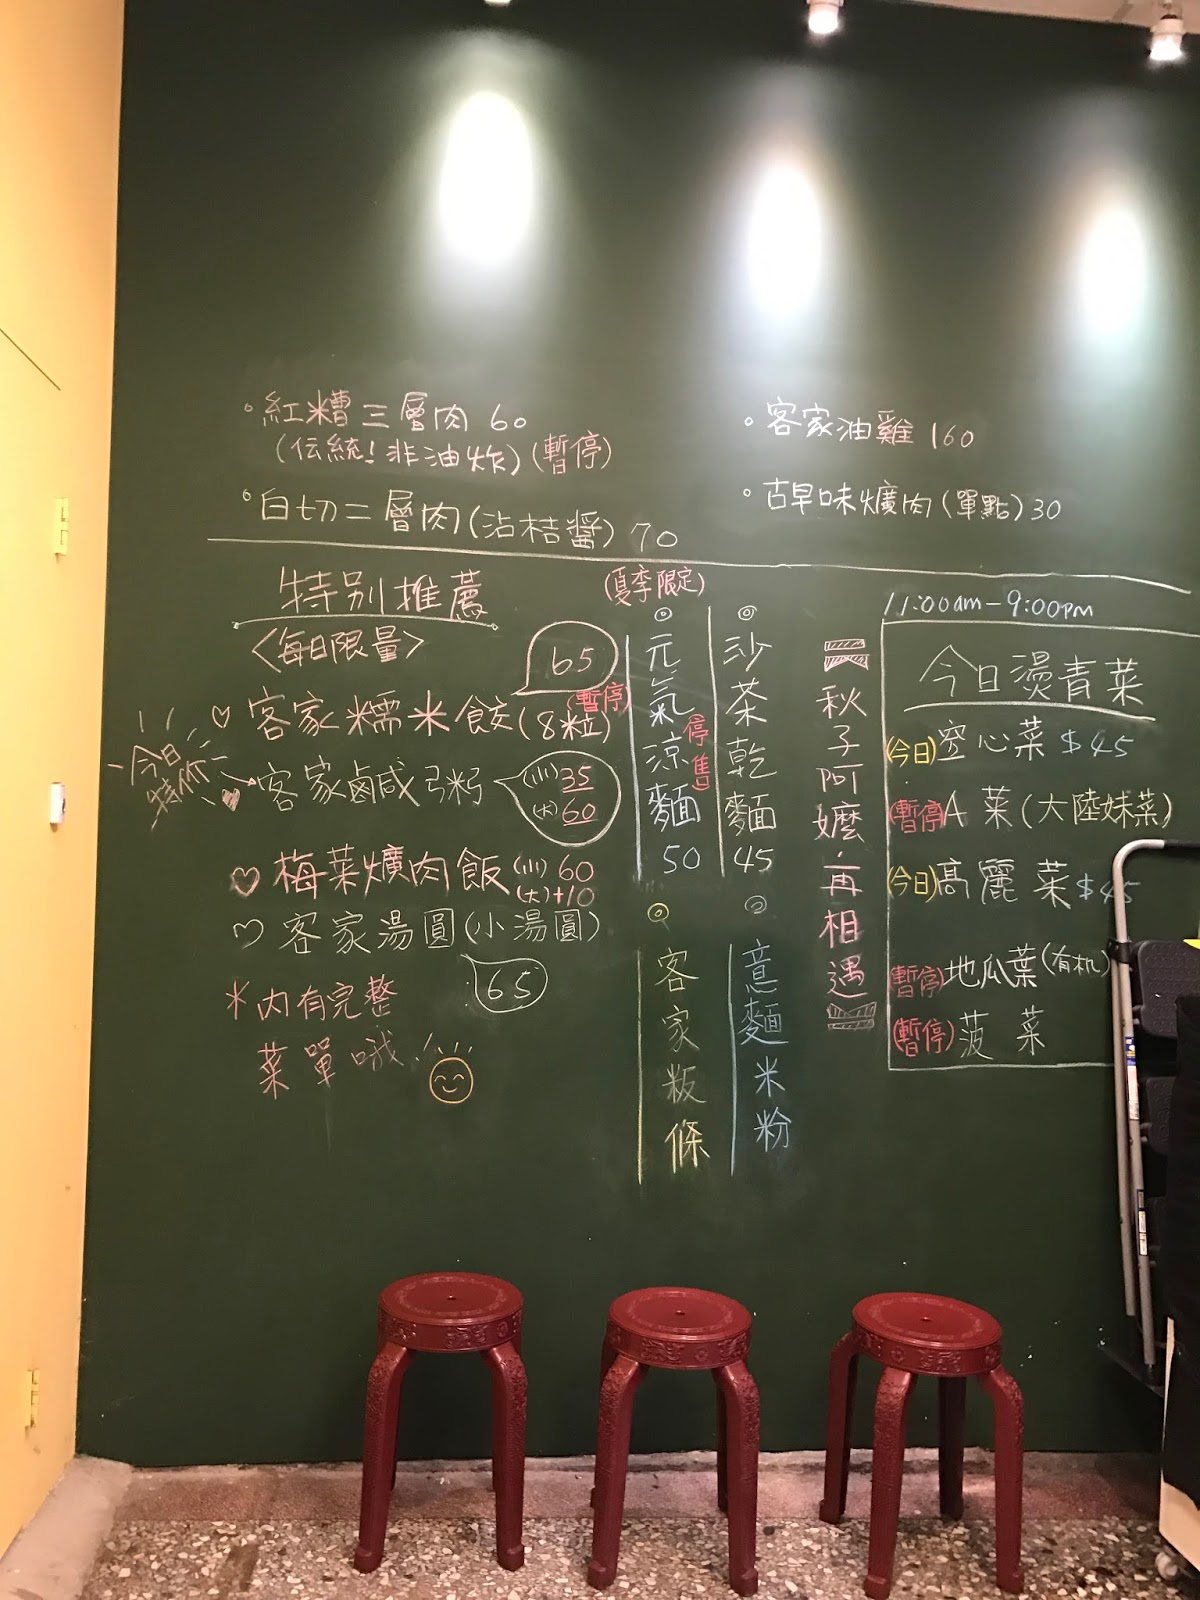 。紅糟三層肉 60
(伝統!非油炸)(暫停)
。白切二層肉(沾桔醬) 70
。客家油雞 160
。古早味爌肉(單點)30
特別推薦
<每日限量>
♡ 客家糯米餃(8粒) 65
(暫停)
今日
特价
客家鹹粥
(小) 35
(大) 60
♡ 梅菜爌肉飯 (小) 60
(大)+10
♡ 客家湯圓(小湯圓)
65
*內有完整
菜單哦
(夏季限定)
◎元氣涼麵 50
停售
◎沙茶乾麵 45
◎客家粄條
◎意麵米粉
秋子阿嬤.再相遇
11:00am-9:00pm
今日燙青菜
(今日)空心菜 $45
(暫停)A 菜(大陸妹菜)
(今日)高麗菜 $45
(暫停)地瓜葉(有机)
(暫停)菠菜